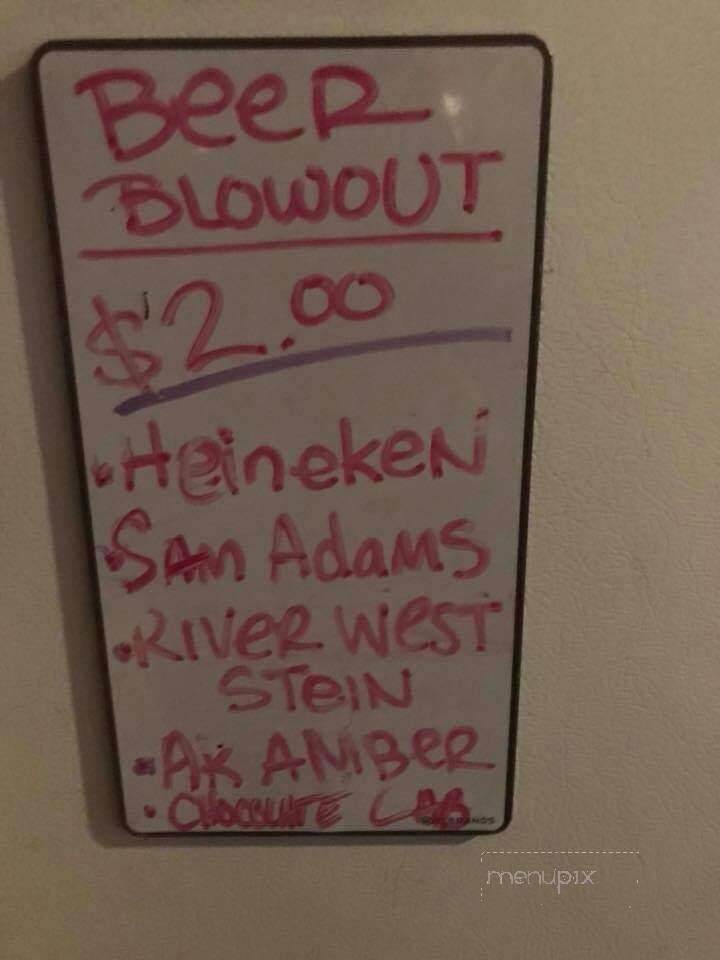 BeeR
BLOWOUT
$2.00
• HeinekeN
• SAm AdaMS
• RIVeR WeST
STeIN
• AK AMBeR
• CHOCOLATE LAB
menupix